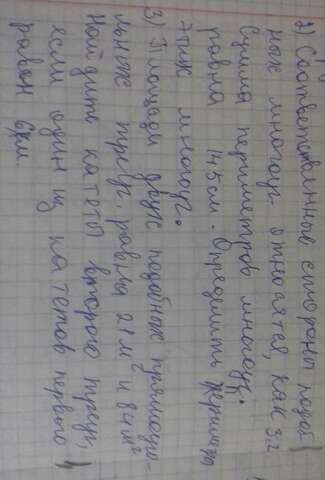 2) Соответственные стороны подоб
ных многоуг. относятся, как 3:2
Сумма периметров многоуг.
равна 145 см. Определить периметры
этих многоуг.
3) Площади двух подобных прямоуго-
льных треуг. равны 21 м² и 84 м²
Найдите катеты второго треуг,
если один из катетов первого
равен 6 см.